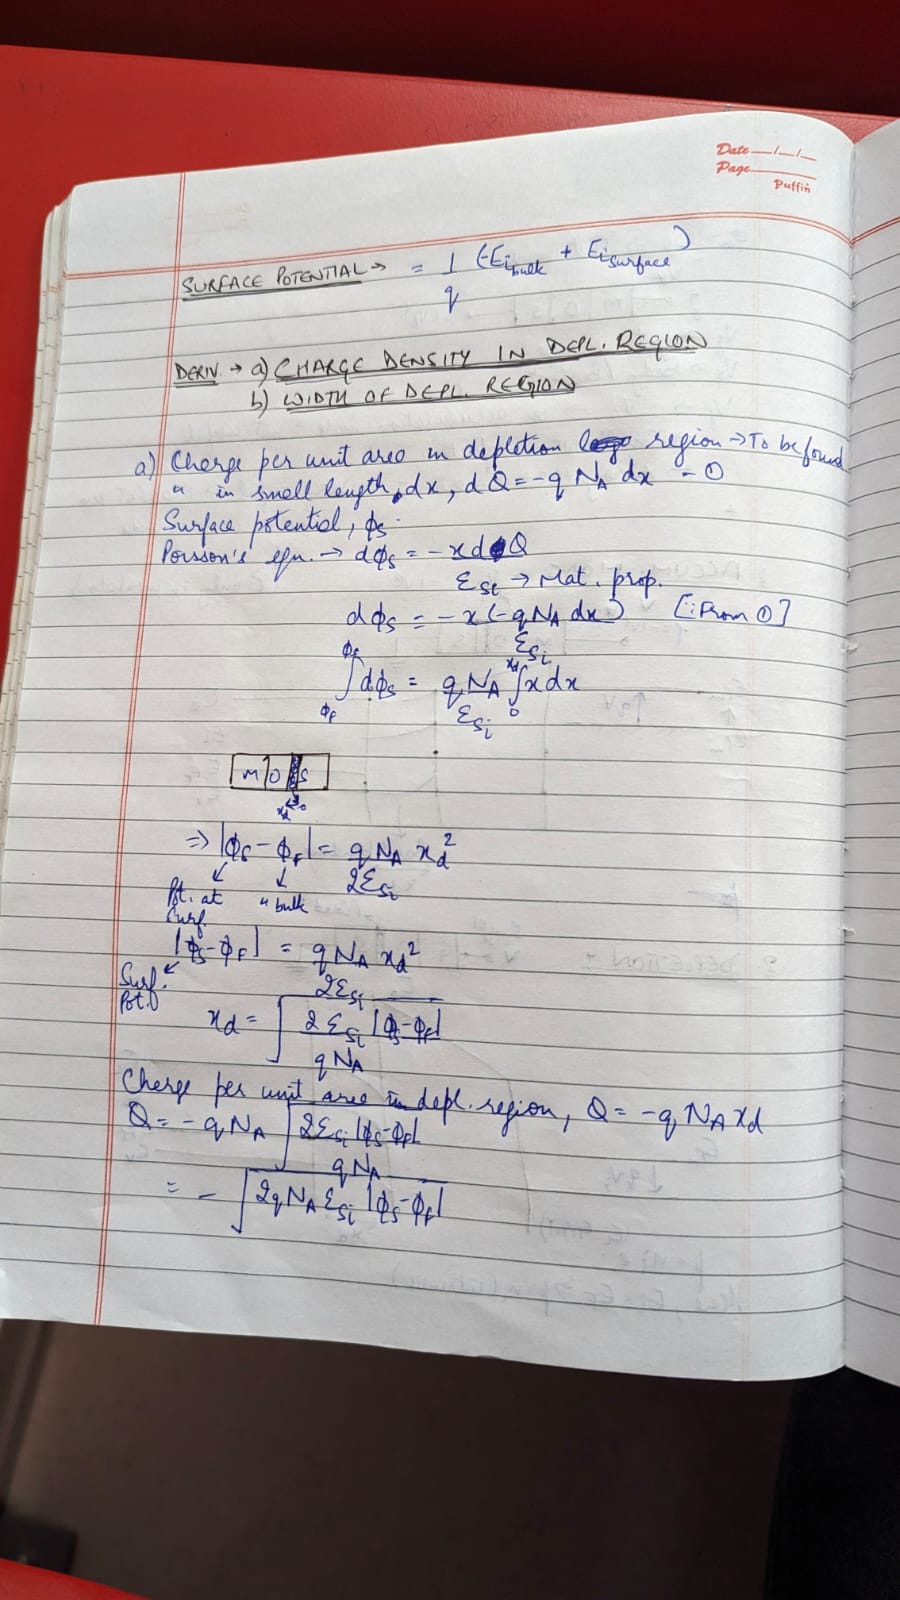 Date __/__/__
Page
Puffin
SURFACE POTENTIAL → = 1/q (-Ei bulk + Ei surface)
DERIV. → a) CHARGE DENSITY IN DEPL. REGION
b) WIDTH OF DEPL. REGION
a) Charge per unit area in depletion region → To be found
" in small length, dx, dQ = -q NA dx - ①
Surface potential, ϕs.
Poisson's eqn. → dϕs = -x dQ
ESi → Mat. prop.
dϕs = -x (-q NA dx) / ESi [∵ From ①]
∫ϕF^ϕs dϕs = q NA / ESi ∫0^xd x dx
M O S
xd 0
⇒ |ϕs - ϕF| = q NA xd² / 2ESi
Pot. at surf. " bulk
|ϕs - ϕF| = q NA xd² / 2ESi
Surf. Pot.
xd = √(2 ESi |ϕs - ϕF| / q NA)
Charge per unit area in depl. region, Q = -q NA xd
Q = -q NA √(2ESi |ϕs - ϕF| / q NA)
= - √(2q NA ESi |ϕs - ϕF|)